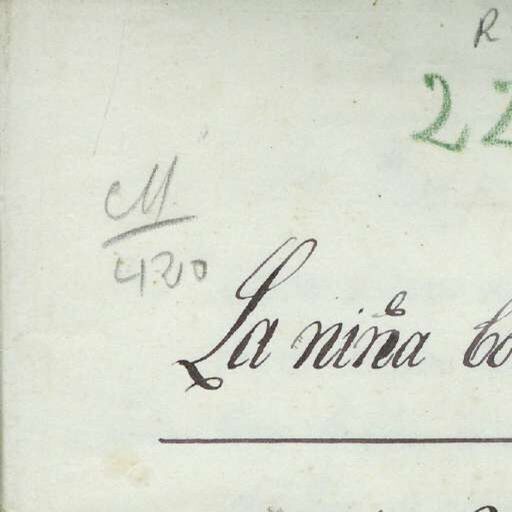 R
22
M
420
La niña bo